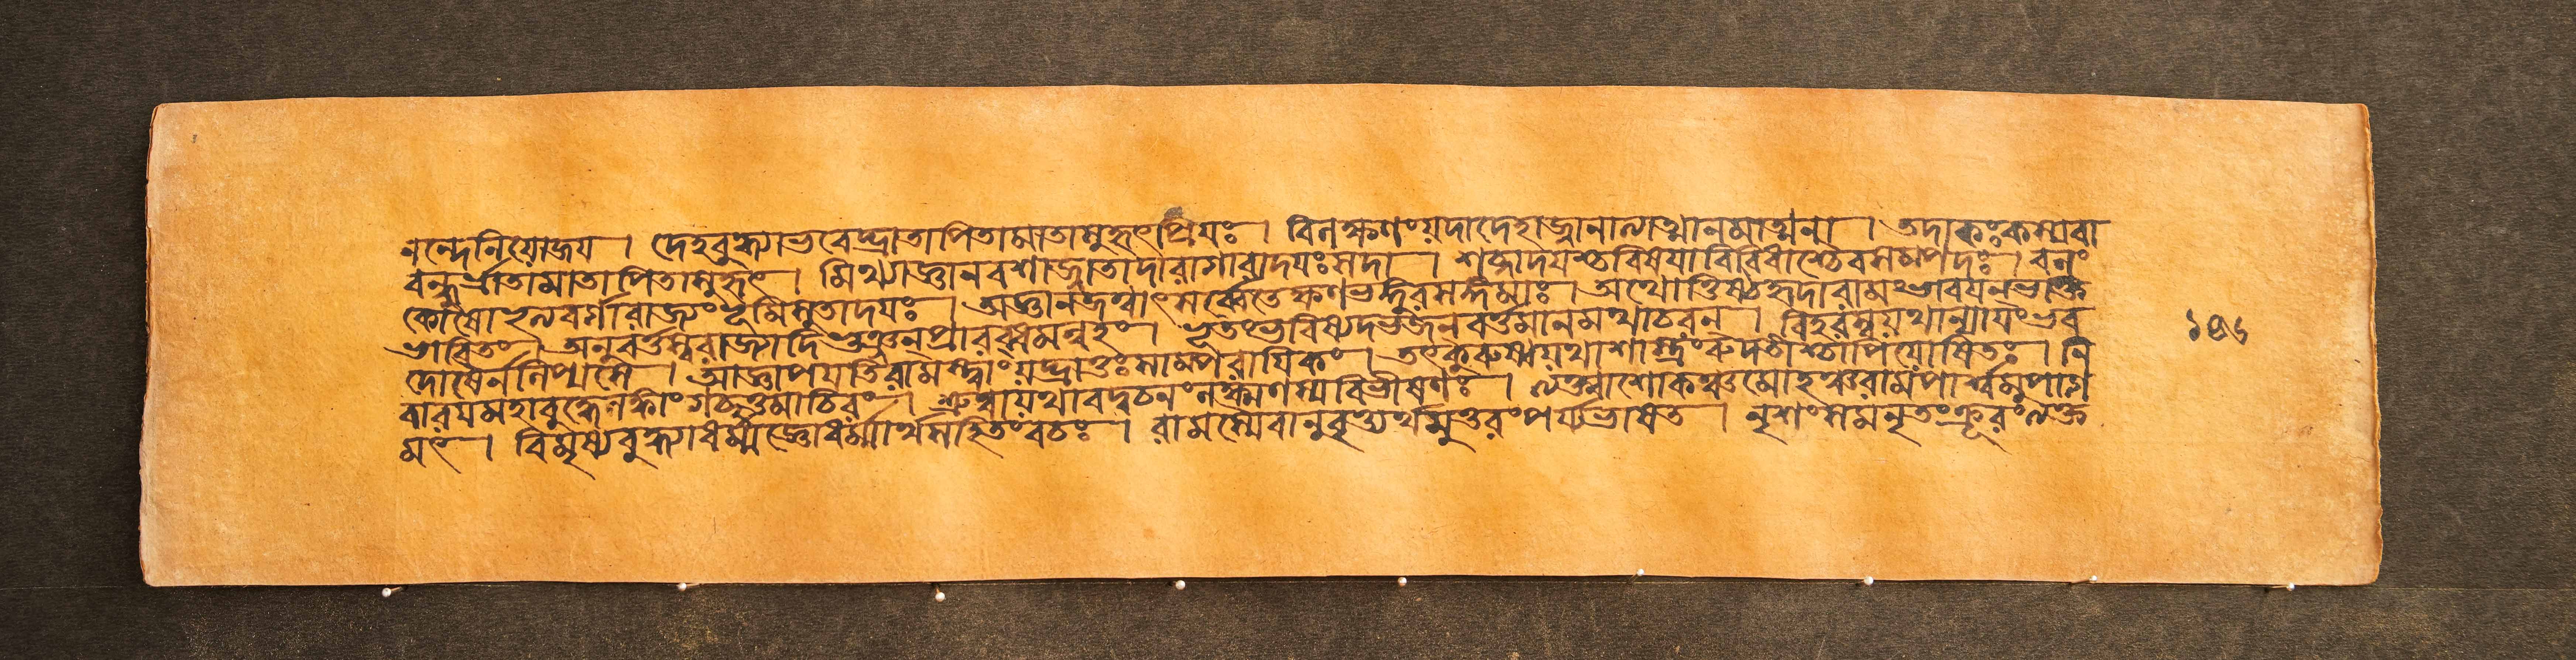 ণন্দেনিয়োজয় । দেহবুদ্ধ্যাভবেদ্ভ্রাতাপিতামাতাসুহৃৎপ্রিয়ঃ । বিলক্ষণংয়দাদেহাজ্জানাত্যাত্মানমাত্মনা । তদাকঃকস্যবা
বন্ধুর্ভ্রাতামাতাপিতাসুহৃৎ । মিথ্যাজ্ঞানবশাজ্জাতাদারাগারাদয়ঃসদা । শব্দাদয়শ্চবিষয়াবিবিধাশ্চৈবসম্পদঃ । বলং
কোষোভৃত্যবর্গোরাজ্যংভূমিসুতাদয়ঃ । অজ্ঞানজত্বাৎসর্ব্বেতেক্ষণভঙ্গুরসঙ্গমাঃ । অথোত্তিষ্ঠহৃদারামংভাবয়নভক্তি
ভাবিতং । অনুবর্ত্তস্বরাজ্যাদিভুঞ্জনপ্রারব্ধমন্বহং । ভূতংভবিষ্যদভজনবর্ত্তমানমথাচরন । বিহরস্বয়থান্যায়ংভব
দোষৈর্নলিপ্যসে । আজ্ঞাপয়তিরামস্ত্বাংয়দ্ভ্রাতুঃসাম্পরায়িকং । তৎকুরুষ্বয়থাশাস্ত্রংরুদতীশ্চাপিয়োষিতঃ । নি
বারয়মহাবুদ্ধেলঙ্কাংগচ্ছতুমাচিরং । শ্রুত্বায়থাবদ্বচনংলক্ষ্মণস্যবিভীষণঃ । ত্যক্ত্বাশোকঞ্চমোহঞ্চরামপার্শ্বমুপাগ
মৎ । বিমৃষ্যবুদ্ধ্যাধর্ম্মজ্ঞোধর্ম্মার্থসহিতংবচঃ । রামস্যৈবানুবৃত্ত্যর্থমুত্তরংপর্য্যভাষত । নৃশংসমনৃতংক্রূরংত্যক্ত